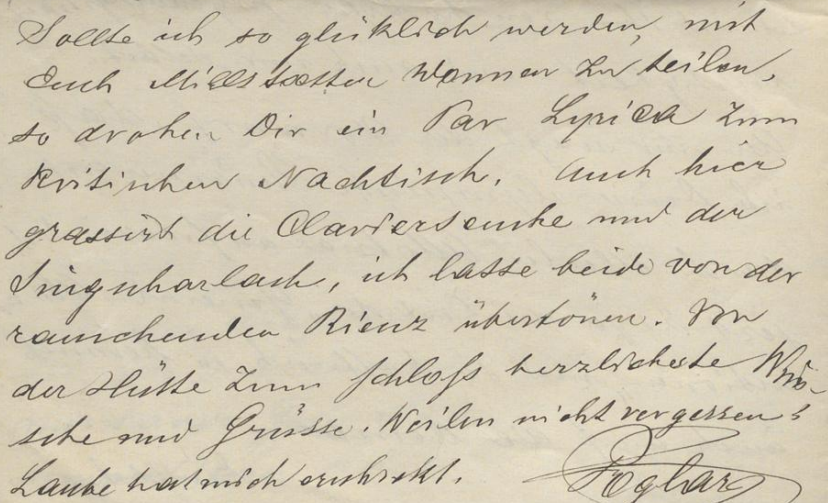 Sollte ich so glüklich werden, mit
Euch Millstatter Wonnen zu teilen,
so drohen Dir ein Par Lyrica zum
kritischen Nachtisch. Auch hier
grassirt die Clavierseuche und der
Singscharlach, ich lasse beide von der
rauschenden Rienz übertönen. Von
der Hütte zum Schloß herzlichste Wün-
sche und Grüsse. Weilen nicht vergessen!
Laube hat mich erschrekt.